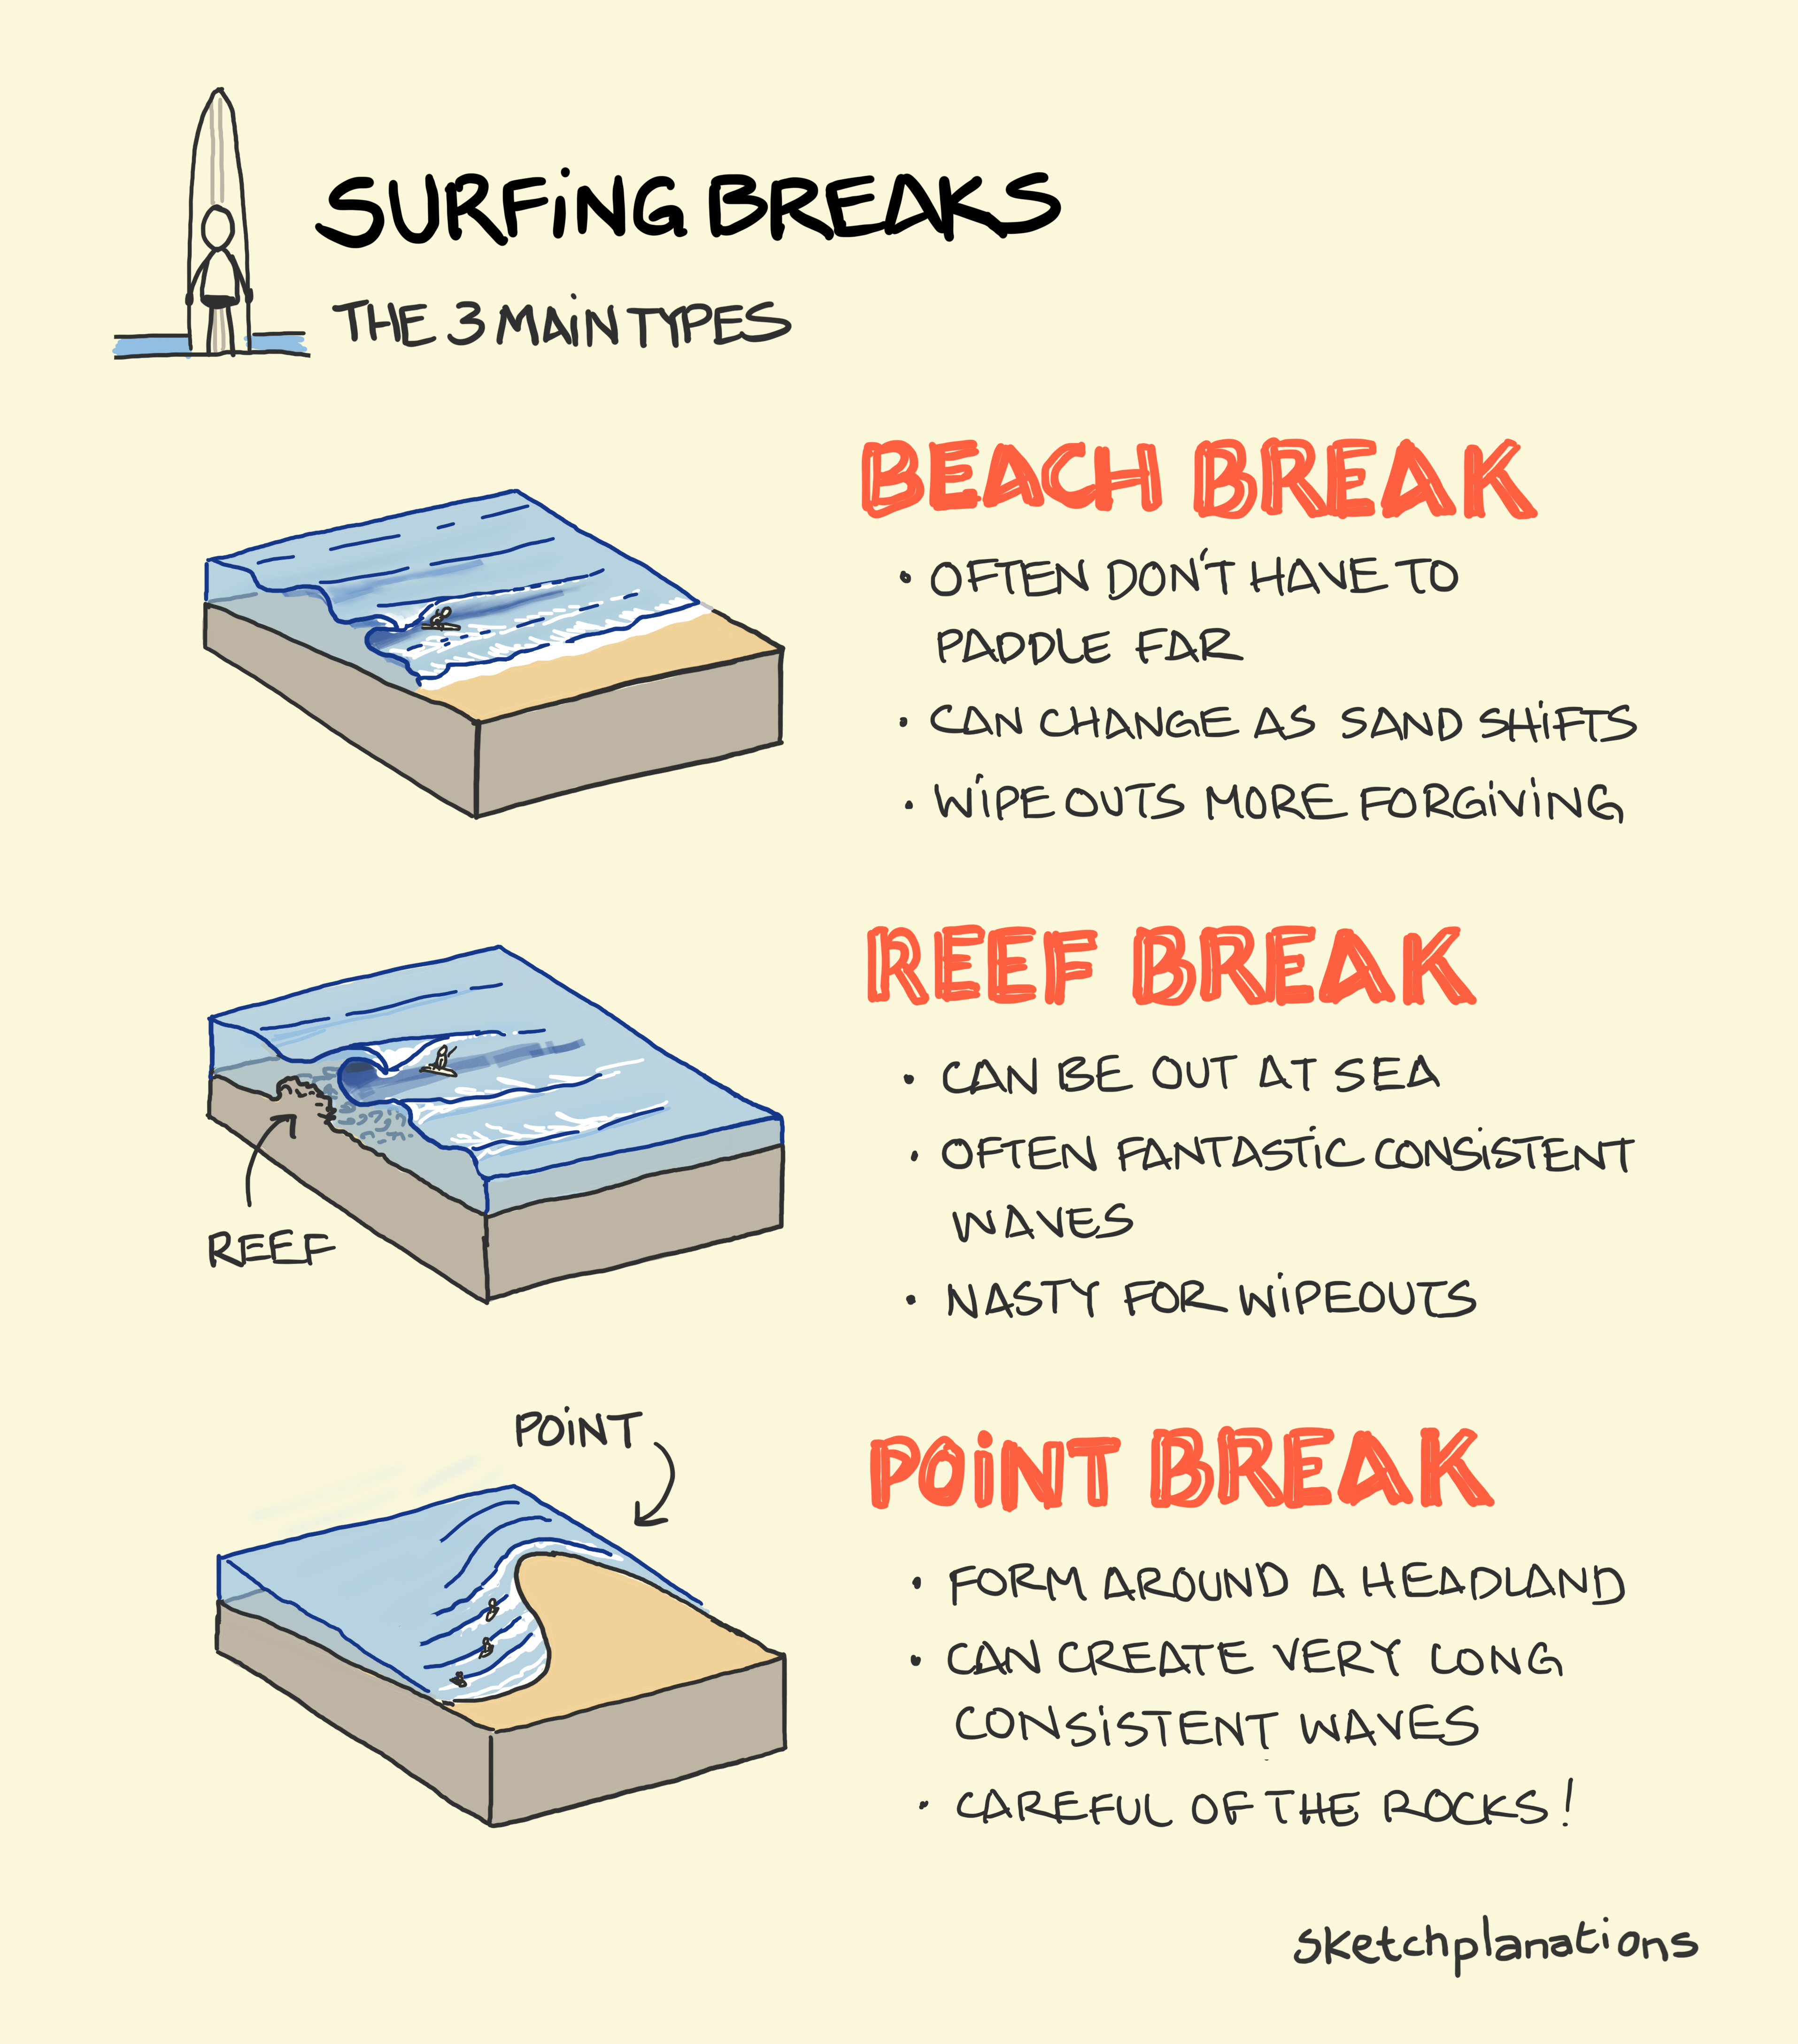 SURFING BREAKS
THE 3 MAIN TYPES
BEACH BREAK
• OFTEN DON'T HAVE TO
PADDLE FAR
• CAN CHANGE AS SAND SHIFTS
• WIPE OUTS MORE FORGIVING
REEF BREAK
• CAN BE OUT AT SEA
• OFTEN FANTASTIC CONSISTENT
WAVES
• NASTY FOR WIPEOUTS
REEF
POINT
POINT BREAK
• FORM AROUND A HEADLAND
• CAN CREATE VERY LONG
CONSISTENT WAVES
• CAREFUL OF THE ROCKS!
sketchplanations